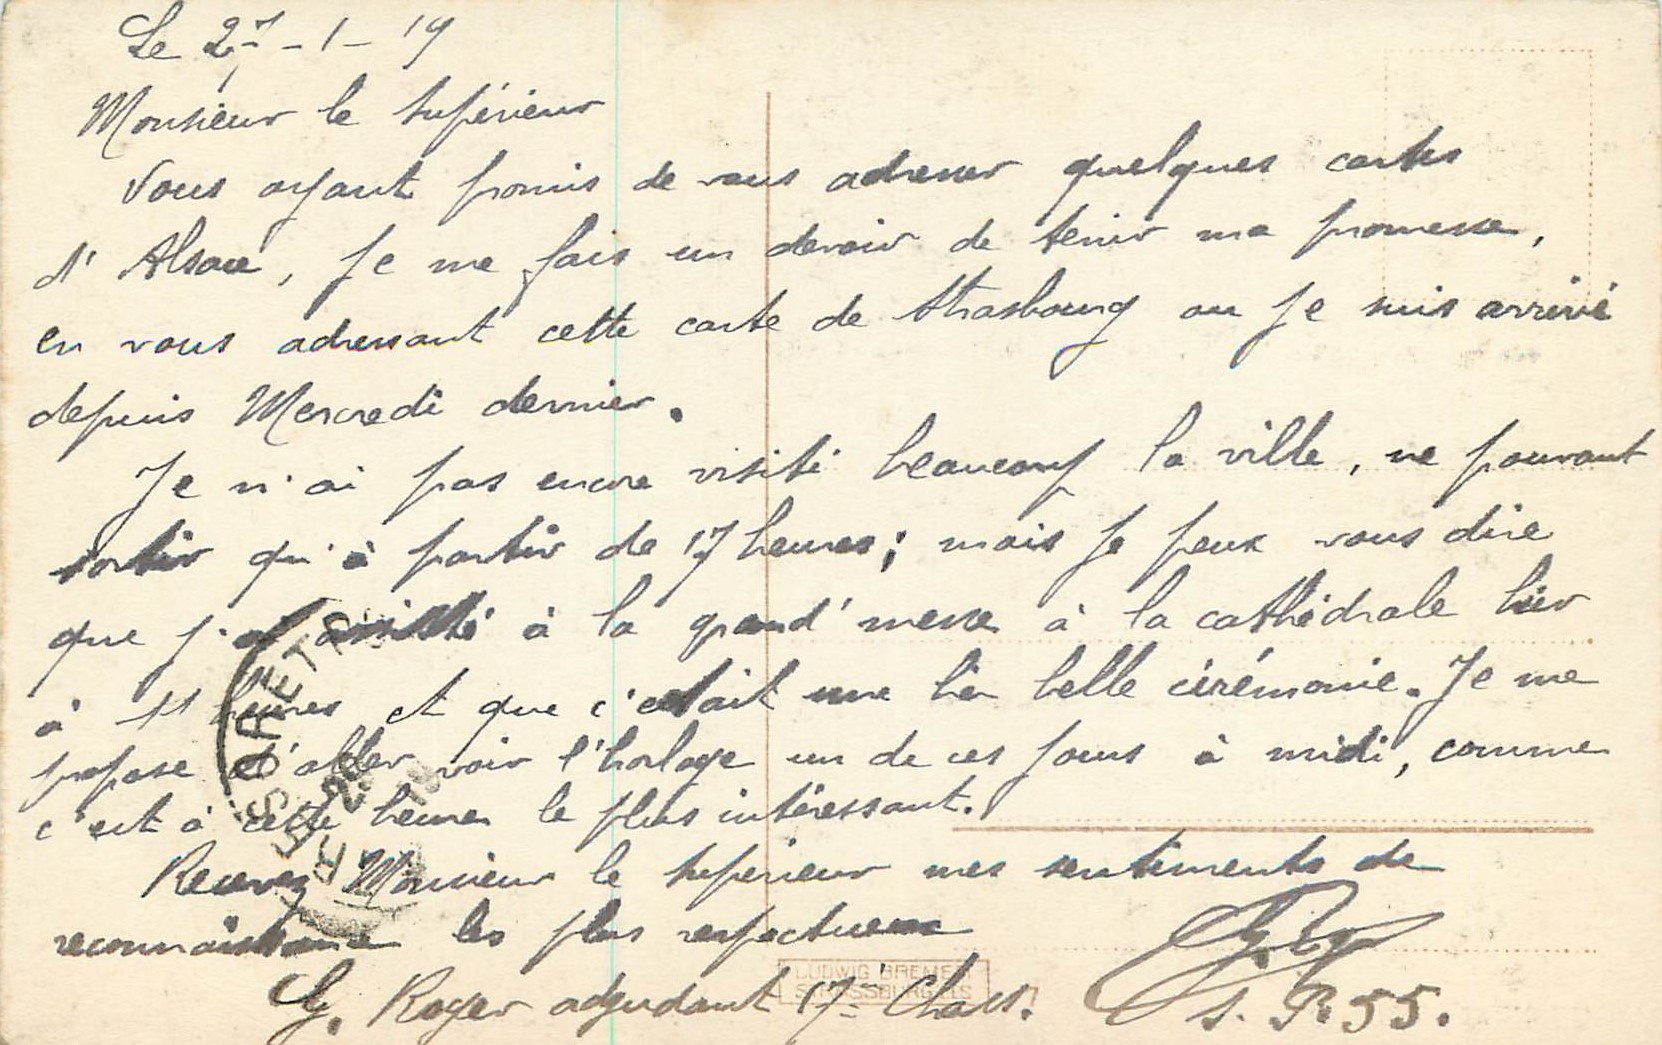 Le 27-1-19
Monsieur le Supérieur
Vous ayant promis de vous adresser quelques cartes
d'Alsace, je me fais un devoir de tenir ma promesse,
en vous adressant cette carte de Strasbourg ou je suis arrivé
depuis Mercredi dernier.
Je n'ai pas encore visité beaucoup la ville, ne pouvant
sortir qu'à partir de 17 heures; mais je peux vous dire
que j'ai assisté à la grand'messe à la cathédrale hier
à 11 heures et que c'etait une bien belle cérémonie. Je me
propose d'aller voir l'horloge un de ces jours à midi, comme
c'est à cette heure le plus intéressant.
Recevez Monsieur le Supérieur mes sentiments de
reconnaissance les plus respectueux
G. Roger adjudant 17ème Chass.
S. P. 55.
LUDWIG BREMER
STRASSBURG ELS